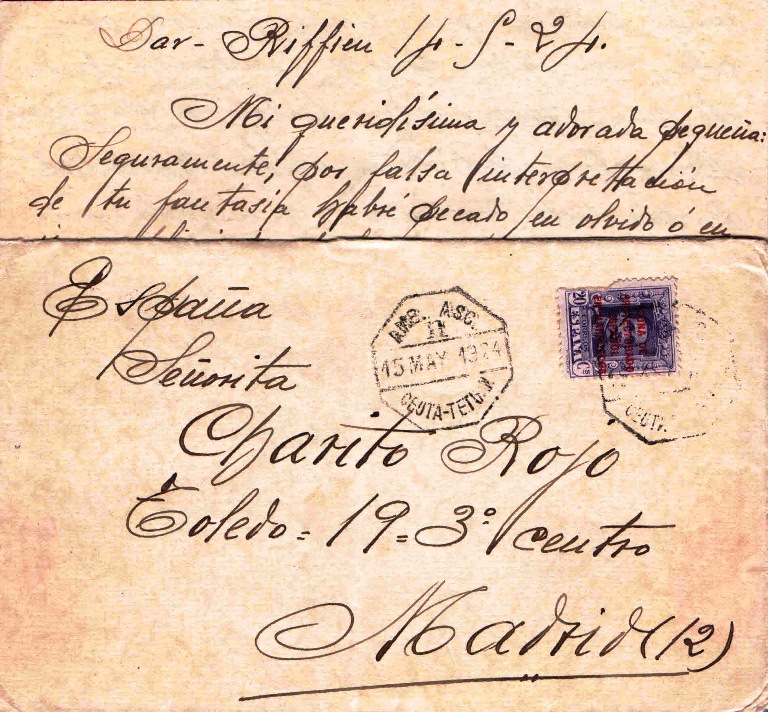 Dar-Riffien 14-5-24.
Mi queridísima y adorada pequeña:
Seguramente, por falsa interpretación
de tu fantasía habré pecado en olvido ó en
España
Señorita
Charito Rojo
Toledo=19=3º centro
Madrid (12)
AMB. ASC.
II
15 MAY 1924
CEUTA-TETUAN
20
ESPAÑA
CEUTA